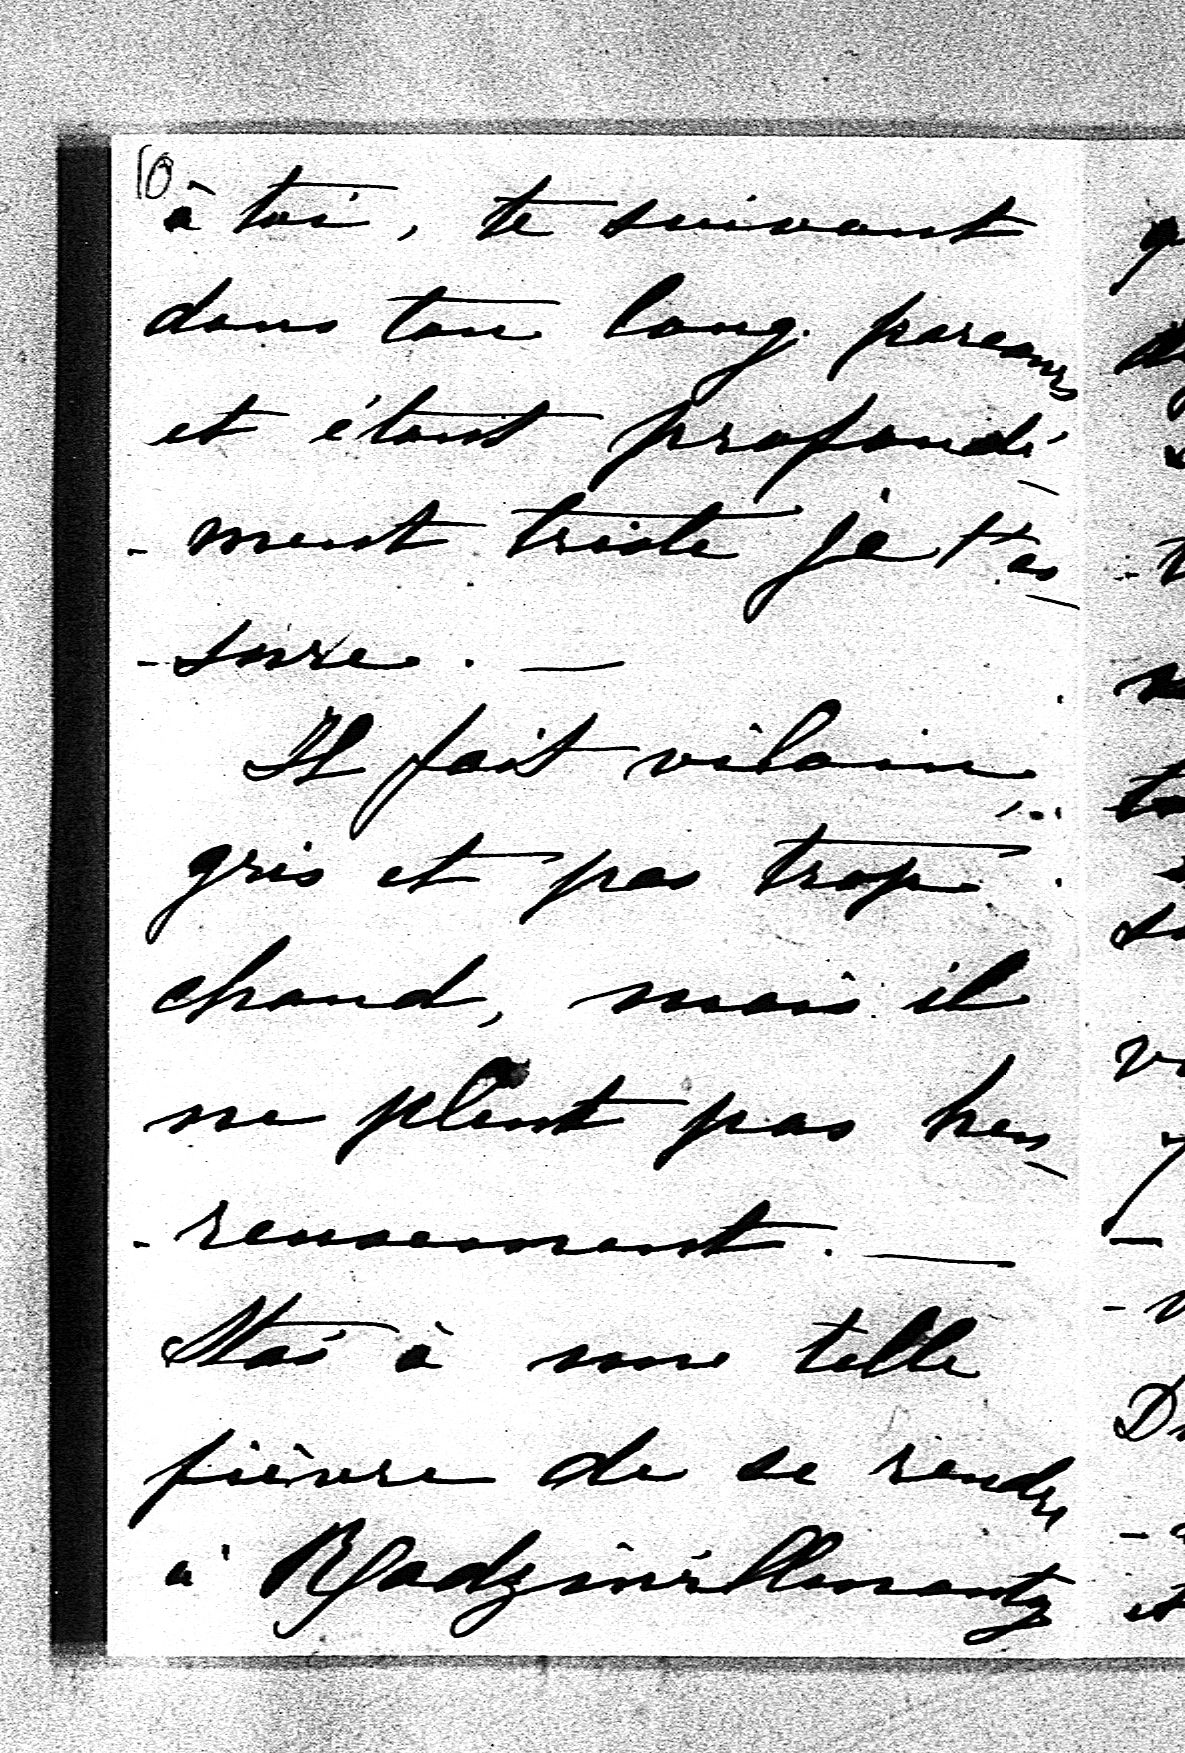 10
à toi, te suivant
dans ton long parcours
et étant profondé-
-ment triste je t'as-
-sure. —
Il fait vilain,
gris et pas trop
chaud, mais il
ne pleut pas heu-
-reusement. —
Stas à une telle
fièvre de se rendre
à